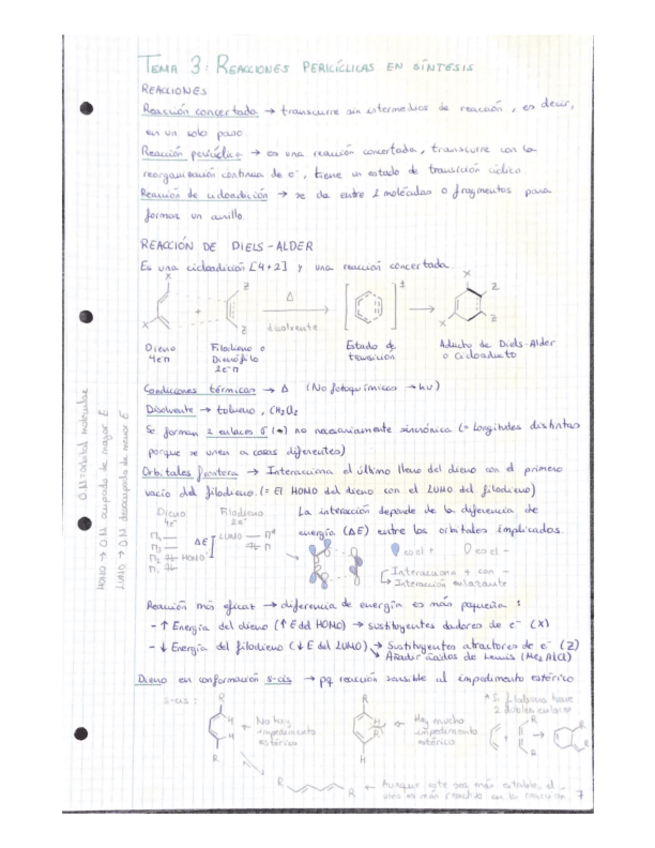 TEMA 3: REACCIONES PERICÍCLICAS EN SÍNTESIS
REACCIONES
Reacción concertada → transcurre sin intermedios de reacción, es decir,
en un solo paso.
Reacción pericíclica → es una reacción concertada, transcurre con la
reorganización continua de e⁻, tiene un estado de transición cíclico.
Reacción de cicloadición → se da entre 2 moléculas o fragmentos para
formar un anillo.
REACCIÓN DE DIELS-ALDER
Es una cicloadición [4+2] y una reacción concertada.
X
X
+
Z
Z
Δ
disolvente
[ ]‡
X
X
Z
Z
Dieno
4eπ
Filodieno o
Dienófilo
2e⁻π
Estado de
transición
Aducto de Diels-Alder
o Cicloaducto
Condiciones térmicas → Δ (No fotoquímicas → hν)
Disolvente → tolueno, CH₂Cl₂
Se forman 2 enlaces σ (•) no necesariamente sincrónica (= Longitudes distintas
porque se unen a cosas diferentes)
Orbitales frontera → Interacciona el último lleno del dieno con el primero
vacío del filodieno. (= El HOMO del dieno con el LUMO del filodieno)
O.M = orbital molecular
HOMO → O.M ocupado de mayor E
LUMO → O.M desocupado de menor E
Dieno
4e⁻
Filodieno
2e⁻
π₄
π₃
π₂ HOMO
π₁
ΔE
LUMO π*
π
La interacción depende de la diferencia de
energía (ΔE) entre los orbitales implicados.
es el +
es el -
Interacciona + con -
Interacción enlazante
Reacción más eficaz → diferencia de energía es más pequeña:
- ↑ Energía del dieno (↑ E del HOMO) → sustituyentes dadores de e⁻ (X)
- ↓ Energía del filodieno (↓ E del LUMO) → Sustituyentes atractores de e⁻ (Z)
Añadir ácidos de Lewis (Me₂AlCl)
Dieno en conformación s-cis → pq reacción sensible al impedimento estérico
s-cis:
R
H
H
R
← No hay
impedimento
estérico
R
H
R
H
← Hay mucho
impedimento
estérico
* Si filodieno tiene
2 dobles enlaces
+
R
R
→
R
R
R
R
← Aunque este sea más estable, el
7